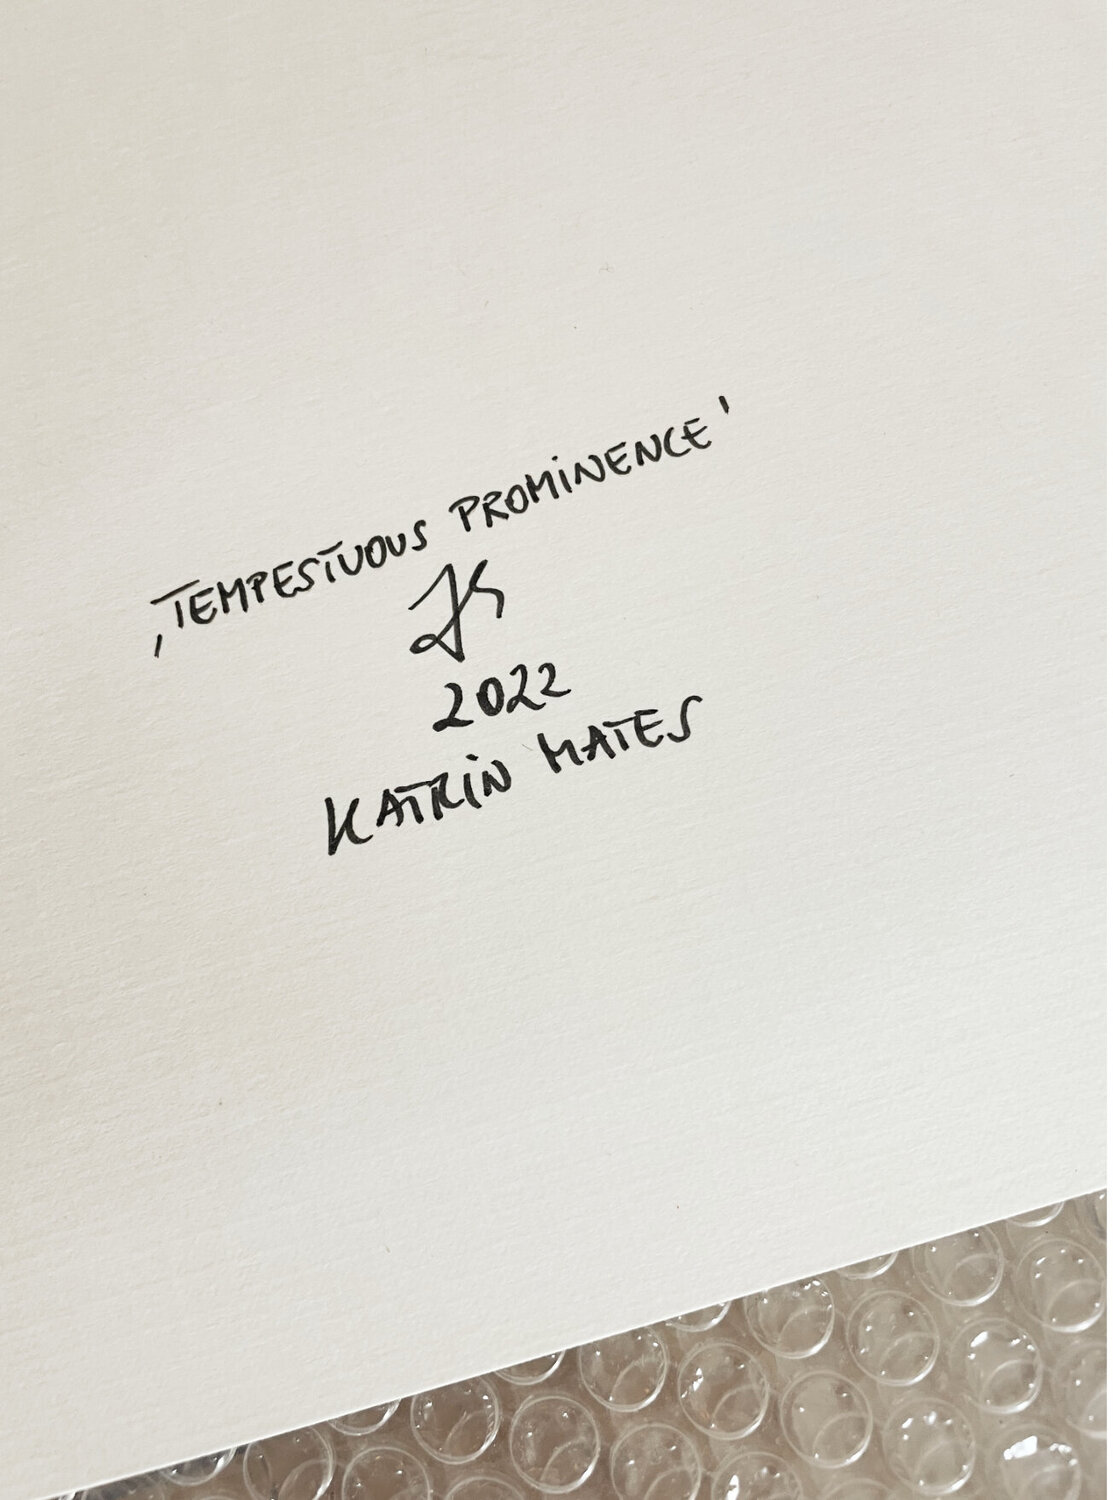 ‚TEMPESTUOUS PROMINENCE'
2022
KATRIN MATES